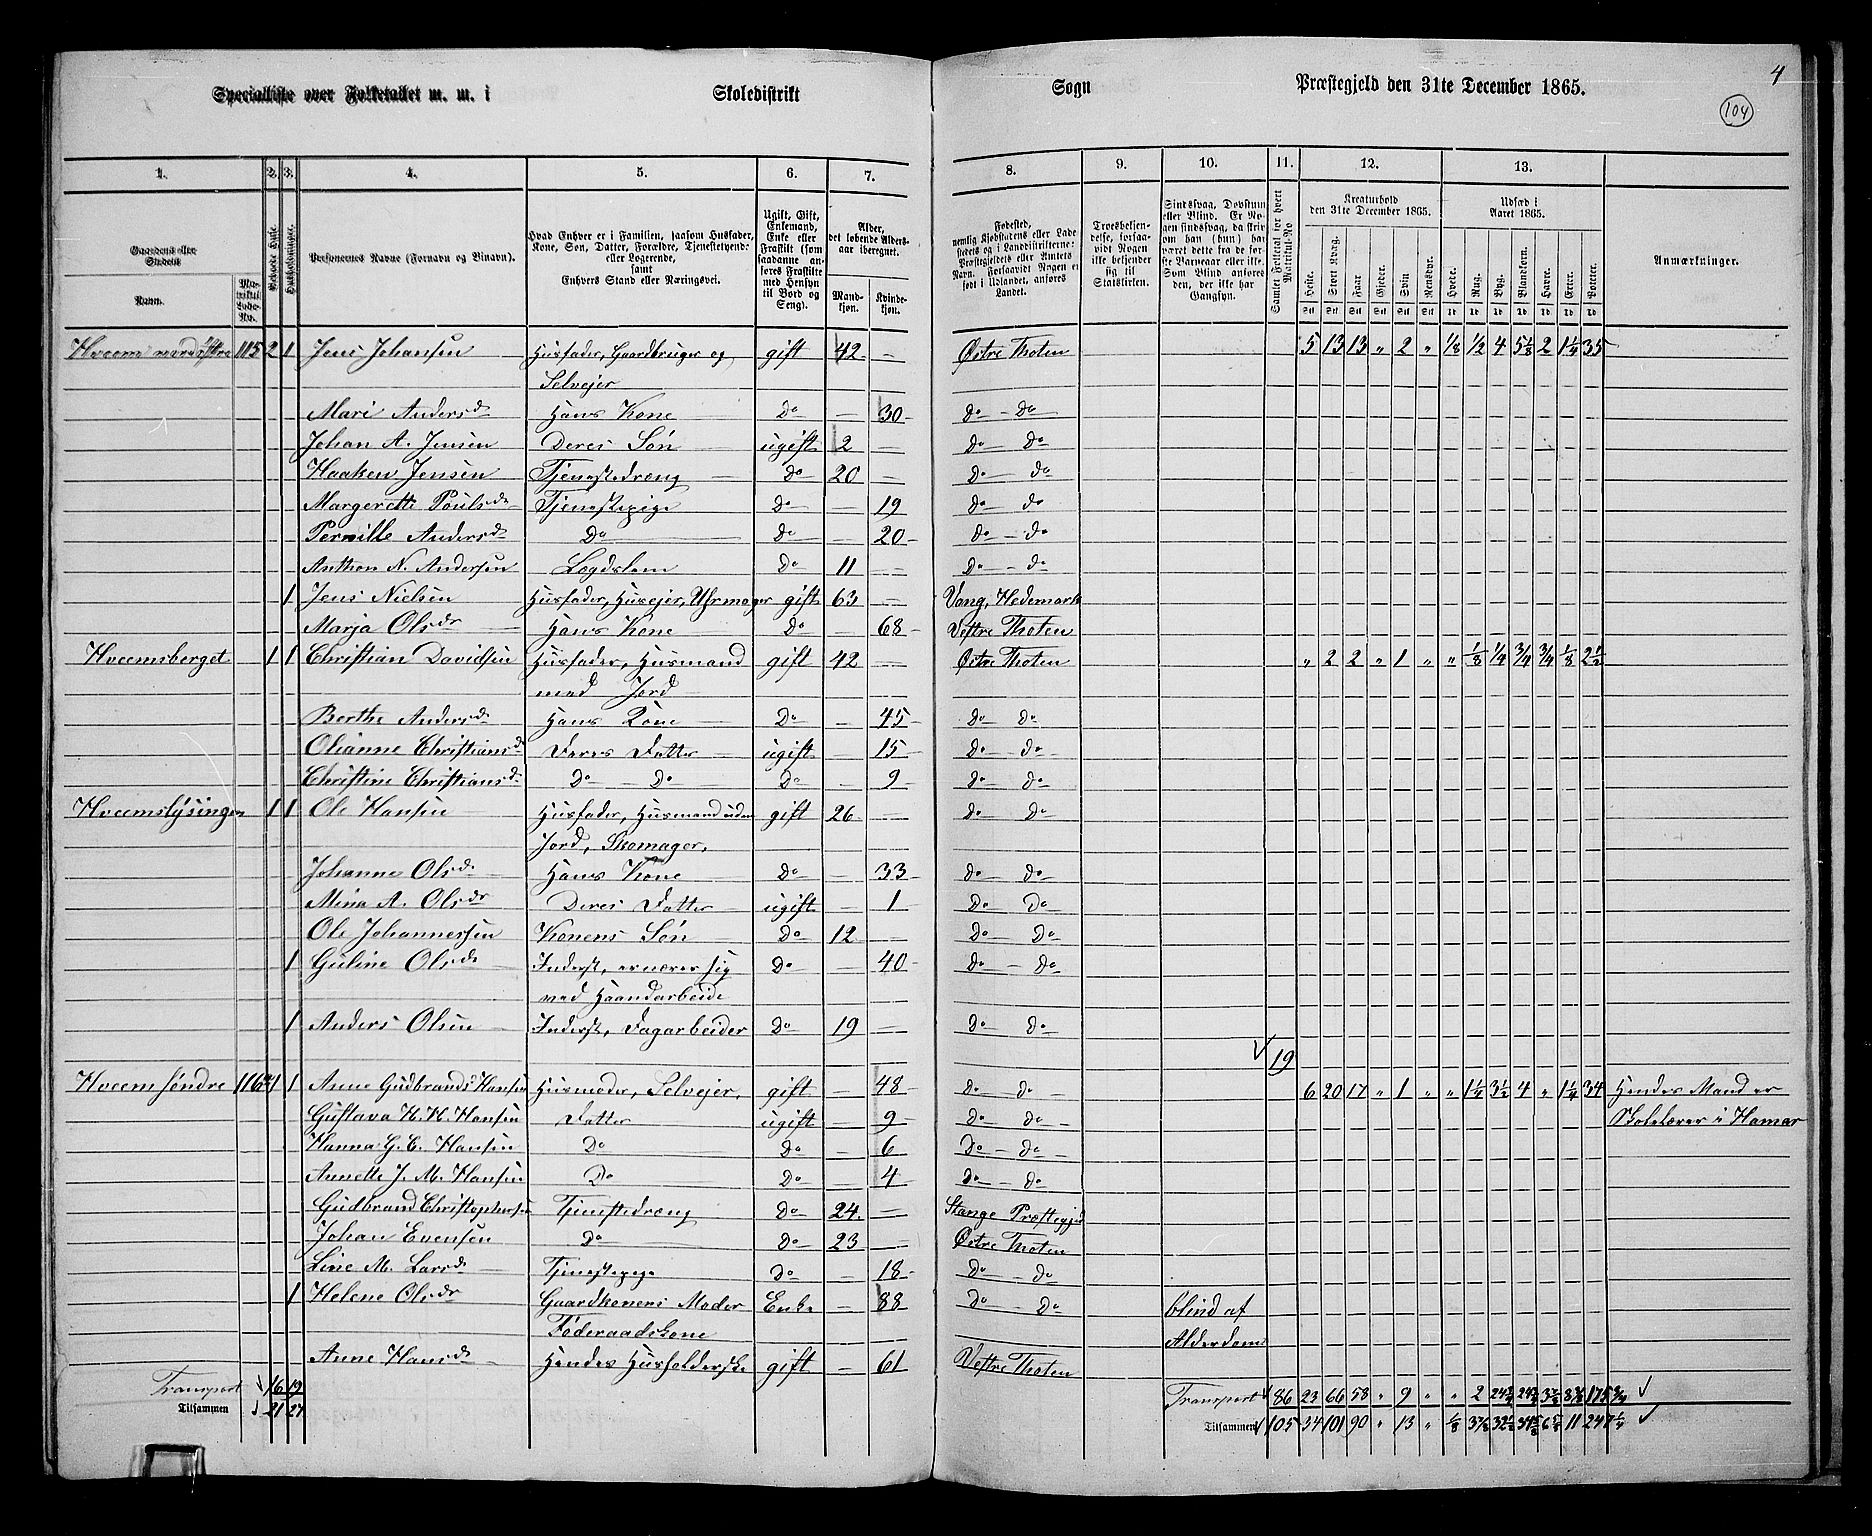 4
104
Specialliste over Folketallet m. m. i Skoledistrikt Sogn Præstegjeld den 31te December 1865.
1. 2. 3. 4. 5. 6. 7. 8. 9. 10. 11. 12. 13.
Gaardens eller Stedets Navn.
Matrikul-Løbe-No.
Beboede Huse.
Husholdninger.
Personernes Navne (Fornavn og Binavn).
Hvad Enhver er i Familien, saasom Husfader, Kone, Søn, Datter, Forældre, Tjenestetyende eller Logerende, samt Enhvers Stand eller Næringsvei.
Ugift, Gift, Enkemand, Enke eller Fraskilt (som saadanne anføres Fraskilte med Hensyn til Bord og Seng).
Alder, det løbende Aldersaar iberegnet.
Mandkjøn. Kvindekjøn.
Fødested, nemlig Kjøbstadens eller Ladestedets og i Landdistrikterne: Præstegjeldets eller Amtets Navn. Forsaavidt Nogen er født i Udlandet, anføres Landet.
Troesbekjendelse, forsaavidt Nogen ikke bekjender sig til Statskirken.
Sindssvag, Døvstum eller Blind. Er Nogen sindssvag, da skrives om han (hun) har været dette fra de første Barneaar eller ikke. Som Blind anføres den, der ikke har Gangsyn.
Samlet Folketal for hvert Matrikul-No
Kreaturhold den 31te December 1865.
Heste. Stort Kvæg. Faar. Gjeder. Svin. Rensdyr.
Udsæd i Aaret 1865.
Hvede. Rug. Byg. Blandkorn. Havre. Erter. Poteter.
Anmærkninger.
Hveem nordøstre 115 2 1 Jens Johansen Husfader, Gaardbruger og gift 42 — Østre Thoten 5 13 13 " 2 " 1/8 1/2 4 5 1/8 2 1 1/4 35
Selvejer
Mari Andersd Hans Kone Do — 30 Do — Do
Johan A. Jensen Deres Søn ugift 2 — Do — Do
Haaken Jensen Tjenestedreng Do 20 — Do — Do
Margerette Poulsd Tjenestepige Do — 19 Do — Do
Pernille Andersd Do Do — 20 Do — Do
Anthon N. Andersen Lægdslem Do 11 — Do — Do
1 Jens Nielsen Husfader, Husejer, Uhrmager gift 63 — Vang, Hedemark
Marja Olsdr Hans Kone Do — 68 Vestre Thoten
Hveemsberget 1 1 Christian Davidsen Husfader, Husmand gift 42 — Østre Thoten " 2 2 " 1 " " 1/8 1/4 3/4 3/4 1/8 2 1/2
med Jord
Berthe Andersd Hans Kone Do — 45 Do — Do
Olianne Christiansd Deres Datter ugift — 15 Do — Do
Christine Christiansd Do — Do Do — 9 Do — Do
Hveemslysingen 1 1 Ole Hansen Husfader, Husmand uden gift 26 — Do Do
Jord, Skomager,
Johanne Olsd Hans Kone Do — 33 Do — Do
Mina A. Olsdr Deres Datter ugift — 1 Do Do
Ole Johannessen Konens Søn Do 12 — Do Do
1 Guline Olsd Inderst, ernærer sig Do — 40 Do — Do
ved Haandarbeide
1 Anders Olsen Inderst, Dagarbeider Do 19 — Do Do
19
Hveem søndre 116 1 1 Anne Gudbrandsd Hansen Husmoder, Selvejer, gift — 48 Do Do 6 20 17 " 1 " " 1 1/4 3 1/2 4 " 1 1/4 34 Hendes Mand er
Gustava H. K. Hansen Datter ugift — 9 Do — Do Skolelærer i Hamar
Hanna G. E. Hansen Do Do — 6 Do — Do
Annette J. M. Hansen Do Do — 4 Do — Do
Gudbrand Christophersen Tjenstedreng Do 24 — Stange Præstegjeld
Johan Evensen Do Do 23 — Østre Thoten
Line M. Larsd Tjenestepige Do — 18 Do — Do
1 Helene Olsdr Gaardkonens Moder Enke — 88 Do — Do blind af
Føderaadskone Alderdom
Anne Hansd Hendes Husholderske gift — 61 Vestre Thoten
Transport 16 19 Transport 86 23 66 58 " 9 " " 2
Tilsammen 21 27 Tilsammen 105 34 101 90 " 13 " 1/8 3 7/8 11 247 1/4